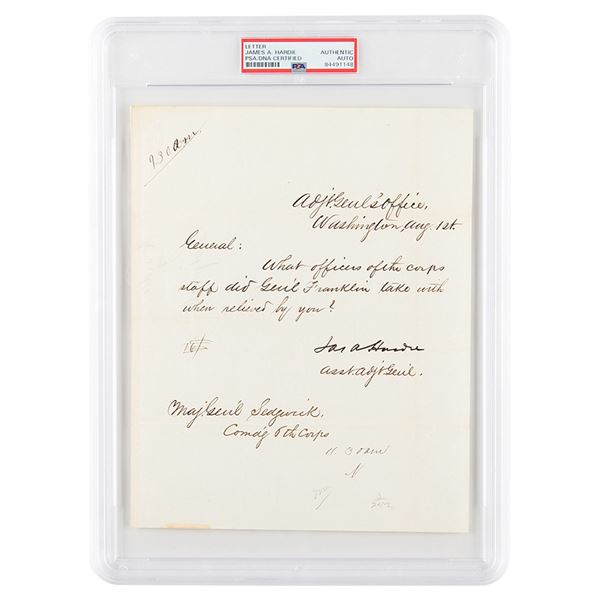 LETTER
JAMES A. HARDIE
PSA/DNA CERTIFIED
AUTHENTIC
AUTO
84491148
PSA
9 30 a.m.
Adjt. Genl's Office,
Washington, Aug. 1st.
General:
What officers of the corps
staff did Gen'l Franklin take with
when relieved by you?
Jas A Hardie
Asst. Adjt Gen'l.
Maj. Gen'l Sedgwick,
Comd'g 6th Corps
11 30 am
N